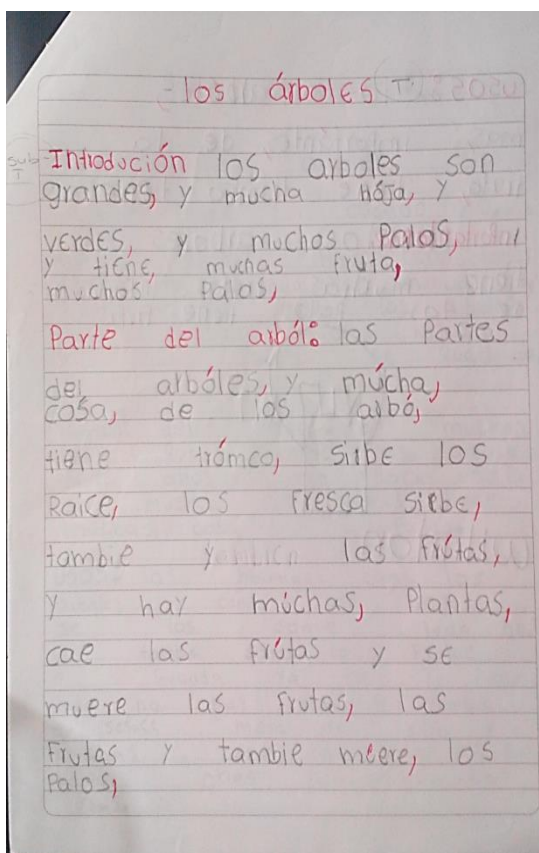 - los árboles T
Sub T
Introdución los arboles son
grandes, y mucha Hója, y
verdes, y muchos Palos,
y tiene, muchas fruta,
muchos Palos,
Parte del arból: las Partes
del arbóles, y múcha,
cosa, de los arbó,
tiene trómco, sirbe los
Raice, los fresca sirbe,
tambie y las frútas,
y hay múchas, Plantas,
cae las frútas y se
muere las frutas, las
Frutas y tambie mcere, los
Palos,